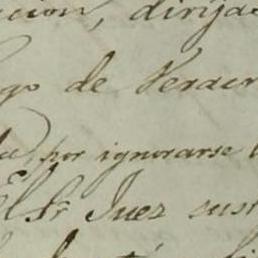 cion, dirija
go de Veracr
por ignorarse
El Sr Juez sust